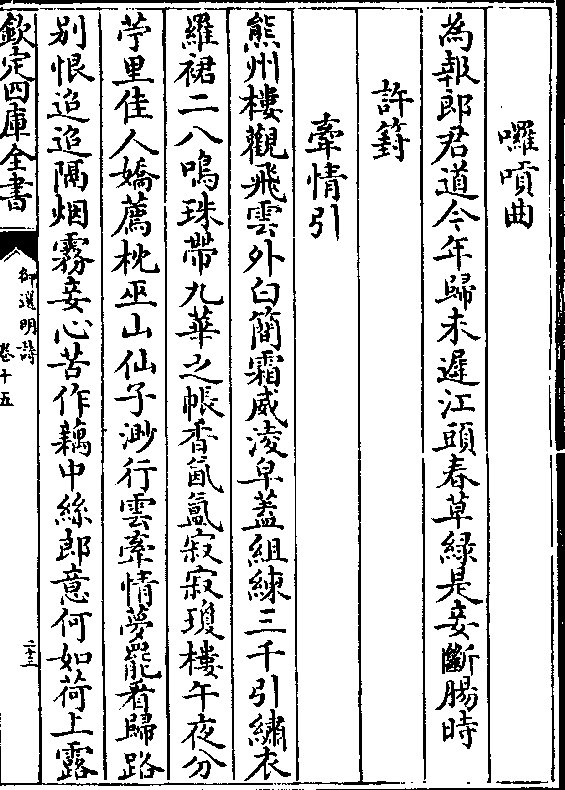 囉嗊曲
為報郎君道今年歸未遲江頭春草緑是妾斷腸時
許䈥
牽情引
熊州樓觀飛雲外白簡霜威淩皁蓋組練三千引繡衣
羅裙二八鳴珠帶九華之帳香氤氲寂寂瓊樓午夜分
苧里佳人嬌薦枕巫山仙子渺行雲牽情夢罷看歸路
别恨迢迢隔烟霧妾心苦作藕中絲郎意何如荷上露
欽定四庫全書
御選明詩
卷十五
二十三